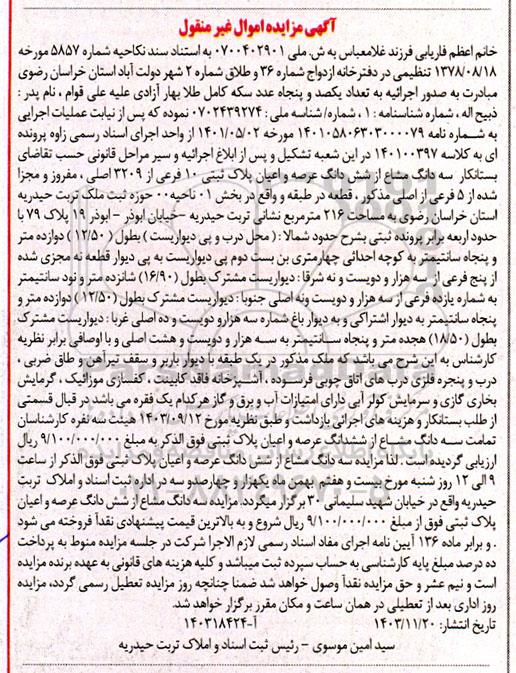 آگهی مزایده اموال غیر منقول
خانم اعظم فاریابی فرزند غلامعباس به ش. ملی ۰۷۰۰۴۰۲۹۰۱ به استناد سند نکاحیه شماره ۵۸۵۷ مورخه
۱۳۷۸/۰۸/۱۸ تنظیمی در دفترخانه ازدواج شماره ۳۶ و طلاق شماره ۲ شهر دولت آباد استان خراسان رضوی
مبادرت به صدور اجرائیه به تعداد یکصد و پنجاه عدد سکه کامل طلا بهار آزادی علیه علی قوام ، نام پدر :
ذبیح اله ، شماره شناسنامه : ۱ ، شماره/ شناسه ملی : ۰۷۰۲۴۳۹۲۷۴ نموده که پس از نیابت عملیات اجرایی
به شماره نامه ۱۴۰۱۰۵۸۰۶۳۰۳۰۰۰۰۷۹ مورخه ۱۴۰۱/۰۵/۰۲ از واحد اجرای اسناد رسمی زاوه پرونده
ای به کلاسه ۱۴۰۱۰۰۳۹۷ در این شعبه تشکیل و پس از ابلاغ اجرائیه و سیر مراحل قانونی حسب تقاضای
بستانکار سه دانگ مشاع از شش دانگ عرصه و اعیان پلاک ثبتی ۱۰ فرعی از ۳۲۰۹ اصلی ، مفروز و مجزا
شده از ۵ فرعی از اصلی مذکور ، قطعه در طبقه و واقع در بخش ۰۱ ناحیه ۰۰ حوزه ثبت ملک تربت حیدریه
استان خراسان رضوی به مساحت ۲۱۶ مترمربع نشانی تربت حیدریه -خیابان ابوذر - ابوذر ۱۹ پلاک ۷۹ با
حدود اربعه برابر پرونده ثبتی بشرح حدود شمالا : ( محل درب و پی دیواریست ) بطول (۱۲/۵۰ ) دوازده متر
و پنجاه سانتیمتر به کوچه احداثی چهارمتری بن بست دوم پی دیواریست به پی دیوار قطعه نه مجزی شده
از پنج فرعی از سه هزار و دویست و نه شرقا : دیواریست مشترک بطول (۱۶/۹۰) شانزده متر و نود سانتیمتر
به شماره یازده فرعی از سه هزار و دویست ونه اصلی جنوبا : دیواریست مشترک بطول (۱۲/۵۰) دوازده متر و
پنجاه سانتیمتر به دیوار اشتراکی و به دیوار باغ شماره سه هزارو دویست و ده اصلی غربا : دیواریست مشترک
بطول (۱۸/۵۰) هجده متر و پنجاه سانتیمتر به سه هزار و دویست و هشت اصلی و با اوصافی برابر نظریه
کارشناس به این شرح می باشد که ملک مذکور در یک طبقه با دیوار باربر و سقف تیرآهن و طاق ضربی ،
درب و پنجره فلزی درب های اتاق چوبی فرسوده ، آشپزخانه فاقد کابینت ، کفسازی موزائیک ، گرمایش
بخاری گازی و سرمایش کولر آبی دارای امتیازات آب و برق و گاز هرکدام یک فقره می باشد در قبال قسمتی
از طلب بستانکار و هزینه های اجرائی بازداشت و طبق نظریه مورخ ۱۴۰۳/۰۹/۱۲ هیئت سه نفره کارشناسان
تمامت سه دانگ مشاع از ششدانگ عرصه و اعیان پلاک ثبتی فوق الذکر به مبلغ ۹/۱۰۰/۰۰۰/۰۰۰ ریال
ارزیابی گردیده است . لذا مزایده سه دانگ مشاع از شش دانگ عرصه و اعیان پلاک ثبتی فوق الذکر از ساعت
۹ الی ۱۲ روز شنبه مورخ بیست و هفتم بهمن ماه یکهزار و چهارصدو سه در اداره ثبت اسناد و املاک تربت
حیدریه واقع در خیابان شهید سلیمانی ۳۰ برگزار میگردد. مزایده سه دانگ مشاع از شش دانگ عرصه و اعیان
پلاک ثبتی فوق از مبلغ ۹/۱۰۰/۰۰۰/۰۰۰ ریال شروع و به بالاترین قیمت پیشنهادی نقداً فروخته می شود
. و برابر ماده ۱۳۶ آیین نامه اجرای مفاد اسناد رسمی لازم الاجرا شرکت در جلسه مزایده منوط به پرداخت
ده درصد مبلغ پایه کارشناسی به حساب سپرده ثبت میباشد و کلیه هزینه های قانونی به عهده برنده مزایده
است و نیم عشر و حق مزایده نقداً وصول خواهد شد ضمنا چنانچه روز مزایده تعطیل رسمی گردد، مزایده
روز اداری بعد از تعطیلی در همان ساعت و مکان مقرر برگزار خواهد شد.
تاریخ انتشار: ۱۴۰۳/۱۱/۲۰ آ-۱۴۰۳۱۸۴۲۴
سید امین موسوی - رئیس ثبت اسناد و املاک تربت حیدریه